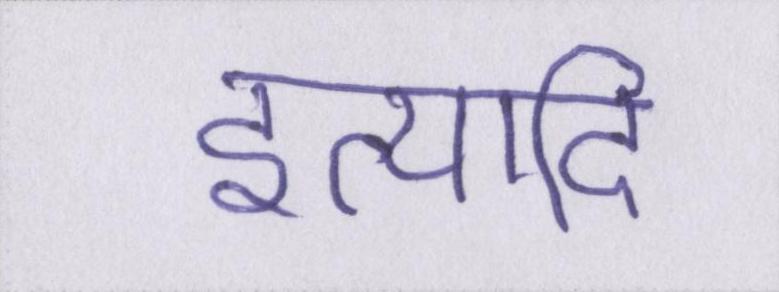 इत्यादि